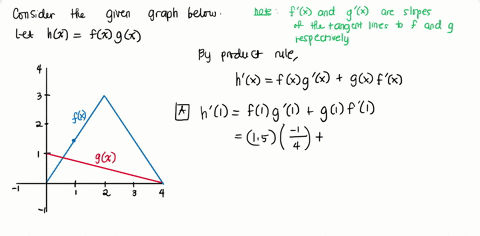 Consider the given graph below.
Let h(x) = f(x)g(x)
note: f'(x) and g'(x) are slopes
of the tangent lines to f and g
respectively
By product rule,
h'(x) = f(x)g'(x) + g(x)f'(x)
A h'(1) = f(1)g'(1) + g(1)f'(1)
= (1.5)(-1/4) +
4
3
2
1
-1
-1
1
2
3
4
f(x)
g(x)